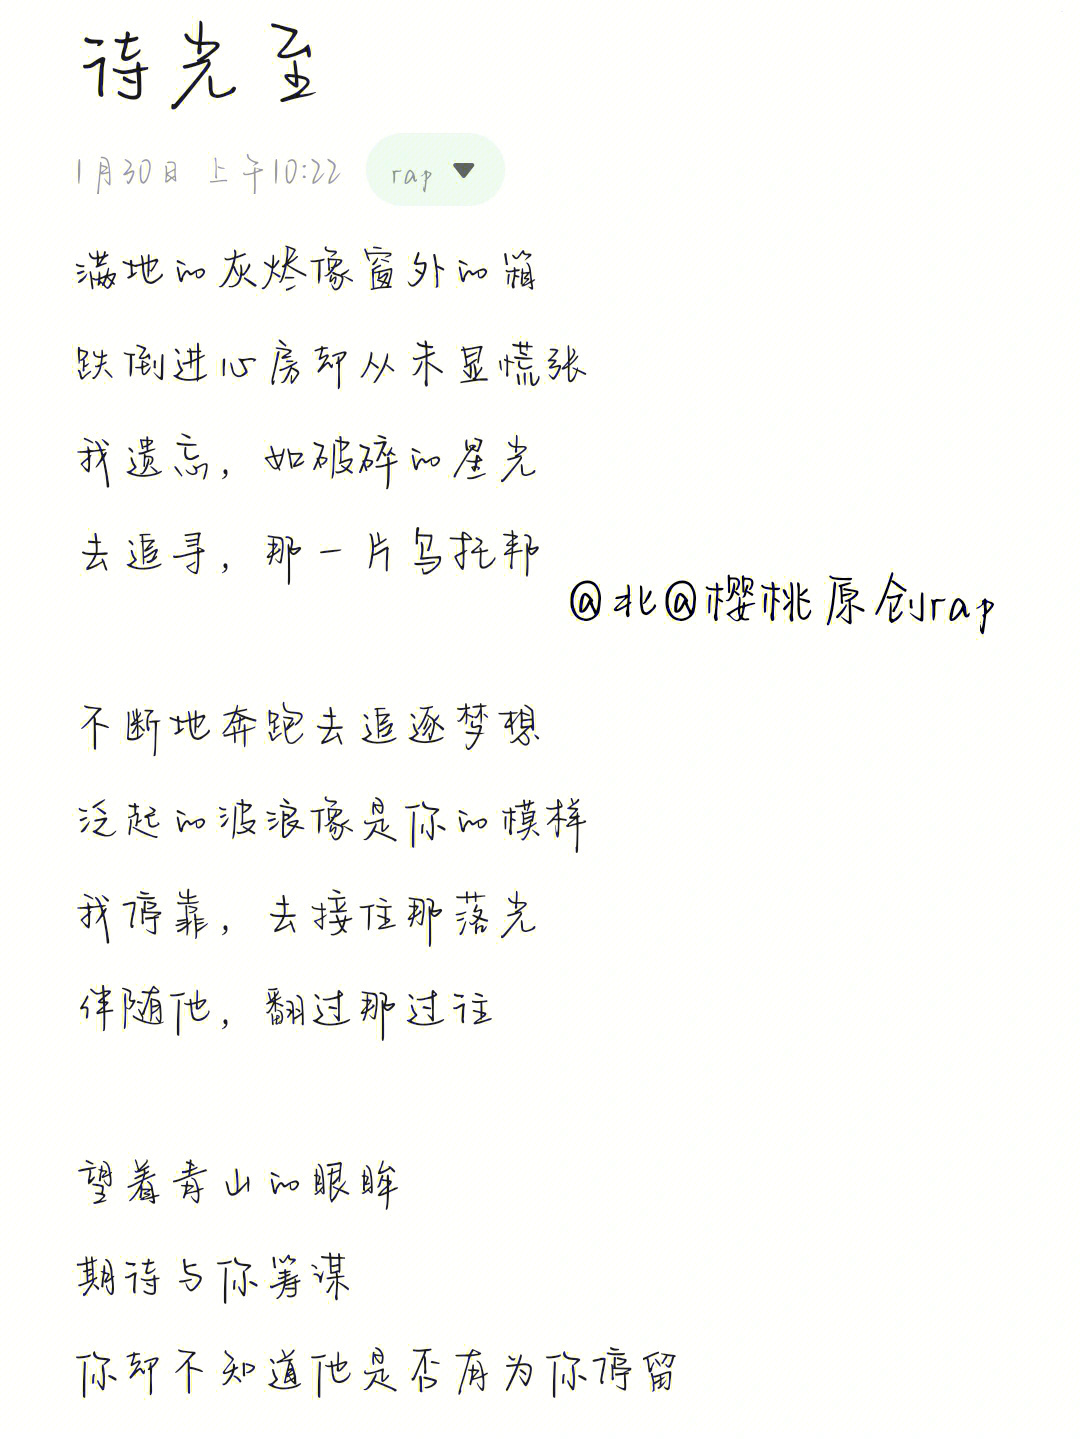 待光至
1月30日 上午10:22 rap
满地的灰烬像窗外的箱
跌倒进心房却从未显慌张
我遗忘，如破碎的星光
去追寻，那一片乌托邦
@北@樱桃原创rap
不断地奔跑去追逐梦想
泛起的波浪像是你的模样
我停靠，去接住那落光
伴随他，翻过那过往
望着青山的眼眸
期待与你筹谋
你却不知道他是否有为你停留